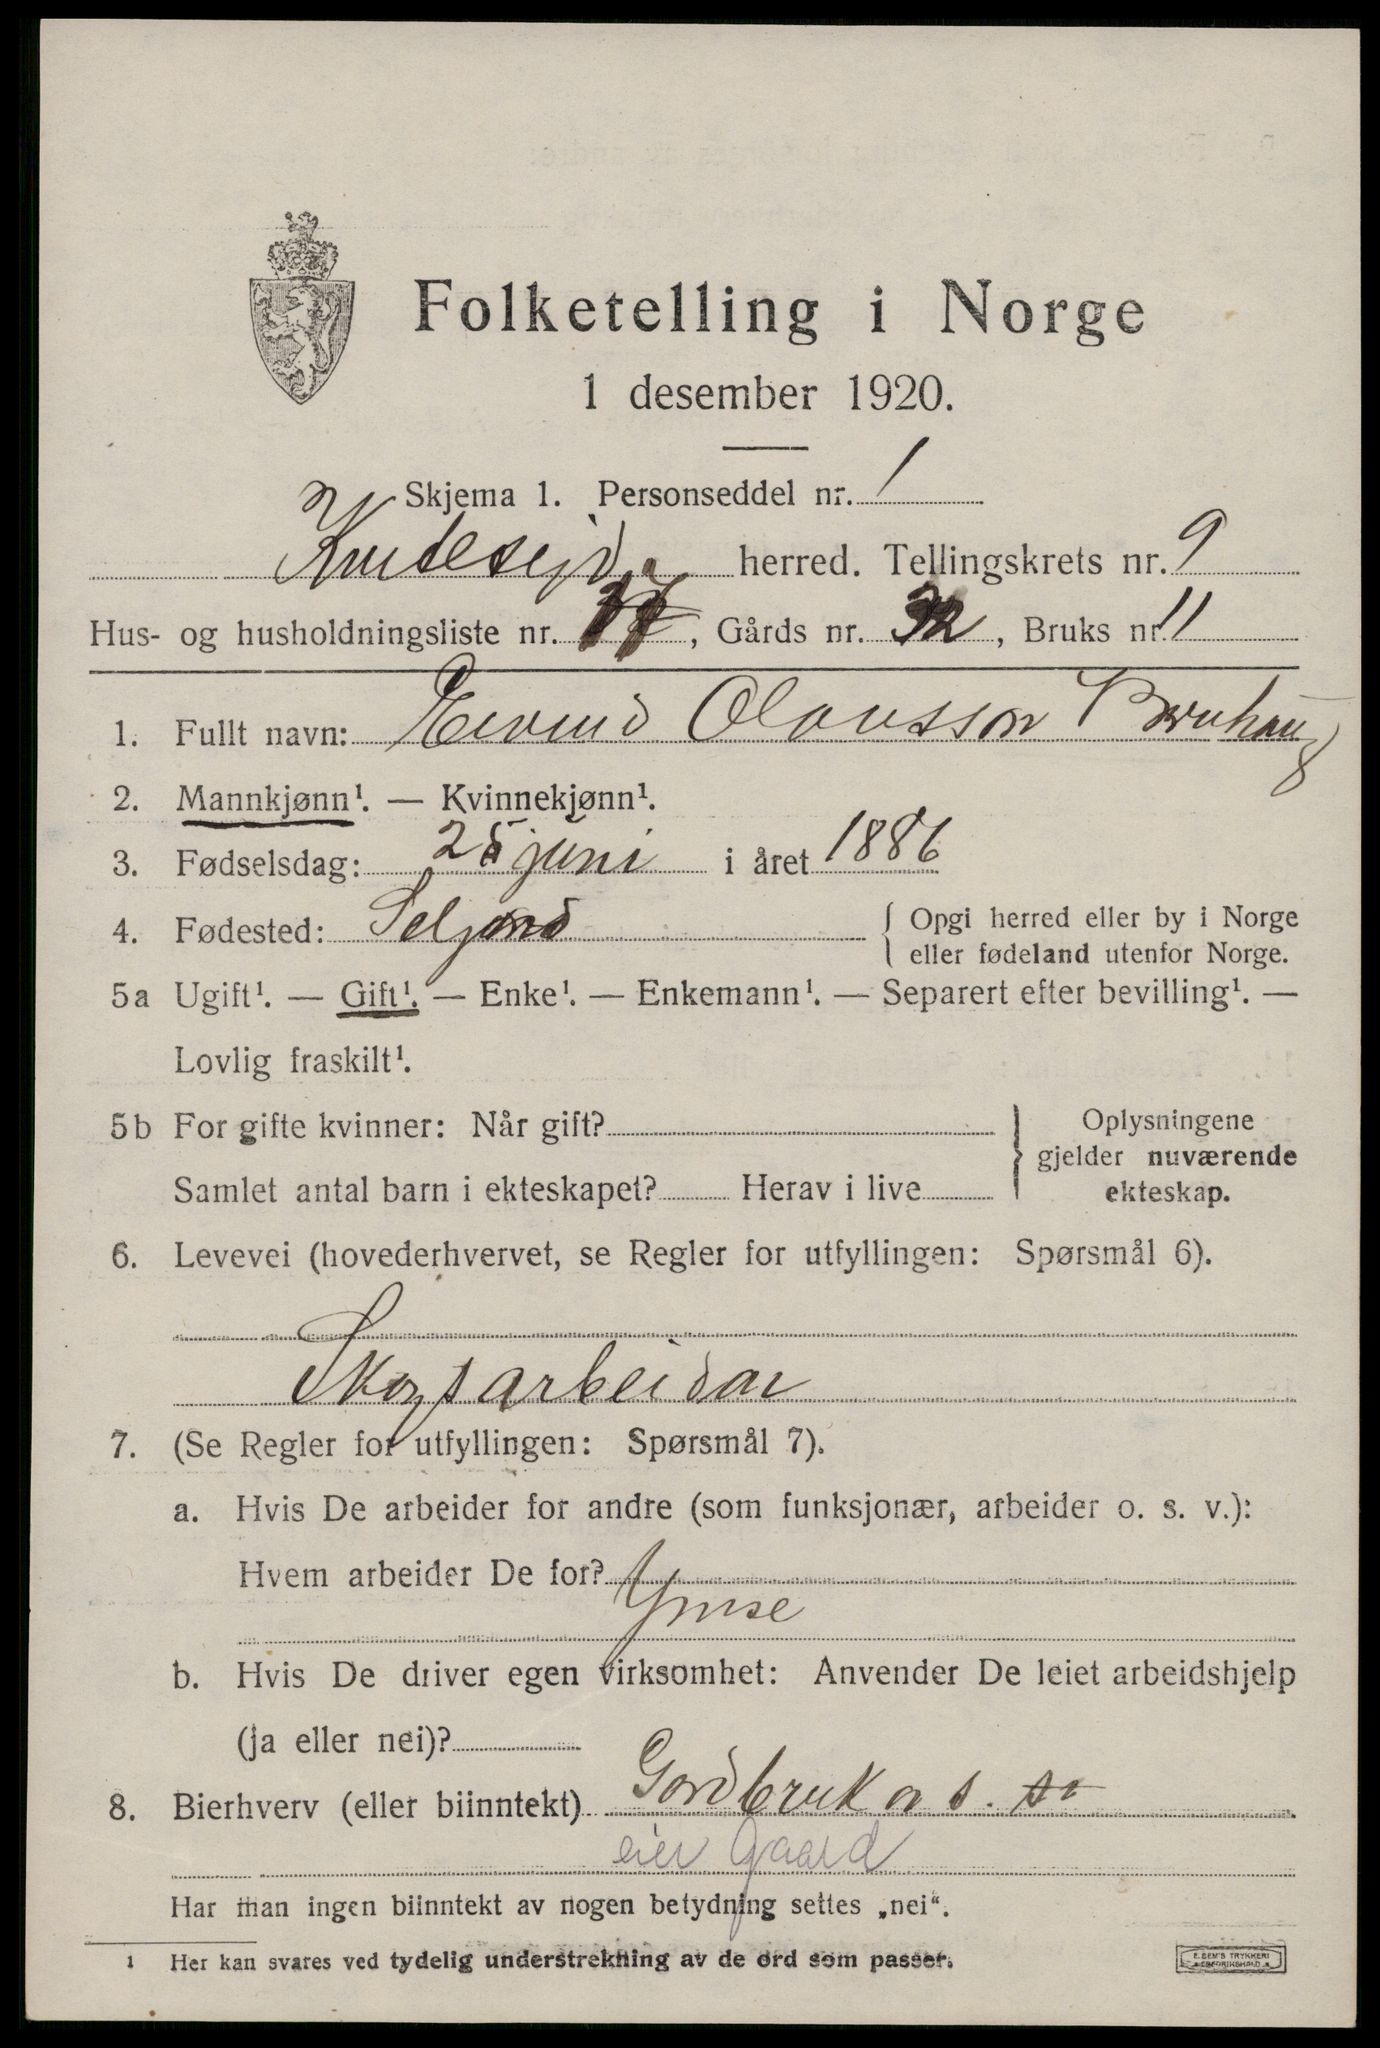 Folketelling i Norge
1 desember 1920.
Skjema 1. Personseddel nr. 1
Kviteseid herred. Tellingskrets nr. 9
Hus- og husholdningsliste nr. 37, Gårds nr. 32, Bruks nr. 11
1. Fullt navn: Eivind Olavsson Brynhaug
2. Mannkjønn¹. — Kvinnekjønn¹.
3. Fødselsdag: 25 juni i året 1886
4. Fødested: Seljord { Opgi herred eller by i Norge
eller fødeland utenfor Norge.
5a Ugift¹. — Gift¹. — Enke¹. — Enkemann¹. — Separert efter bevilling¹. —
Lovlig fraskilt¹.
5b For gifte kvinner: Når gift? } Oplysningene
gjelder nuværende
Samlet antal barn i ekteskapet? Herav i live ekteskap.
6. Levevei (hovederhvervet, se Regler for utfyllingen: Spørsmål 6).
Skogsarbeidar
7. (Se Regler for utfyllingen: Spørsmål 7).
a. Hvis De arbeider for andre (som funksjonær, arbeider o. s. v.):
Hvem arbeider De for?
Ymse
b. Hvis De driver egen virksomhet: Anvender De leiet arbeidshjelp
(ja eller nei)?
8. Bierhverv (eller biinntekt) Gardbrukar s.
eier Gaard
Har man ingen biinntekt av nogen betydning settes „nei“.
1 Her kan svares ved tydelig understrekning av de ord som passer.
E. SEM'S TRYKKERI
FREDRIKSHALD